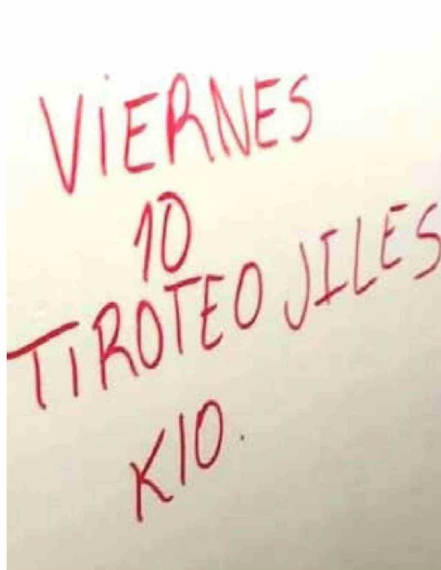 ViERNES
10
TiROTEO JILES
K10.